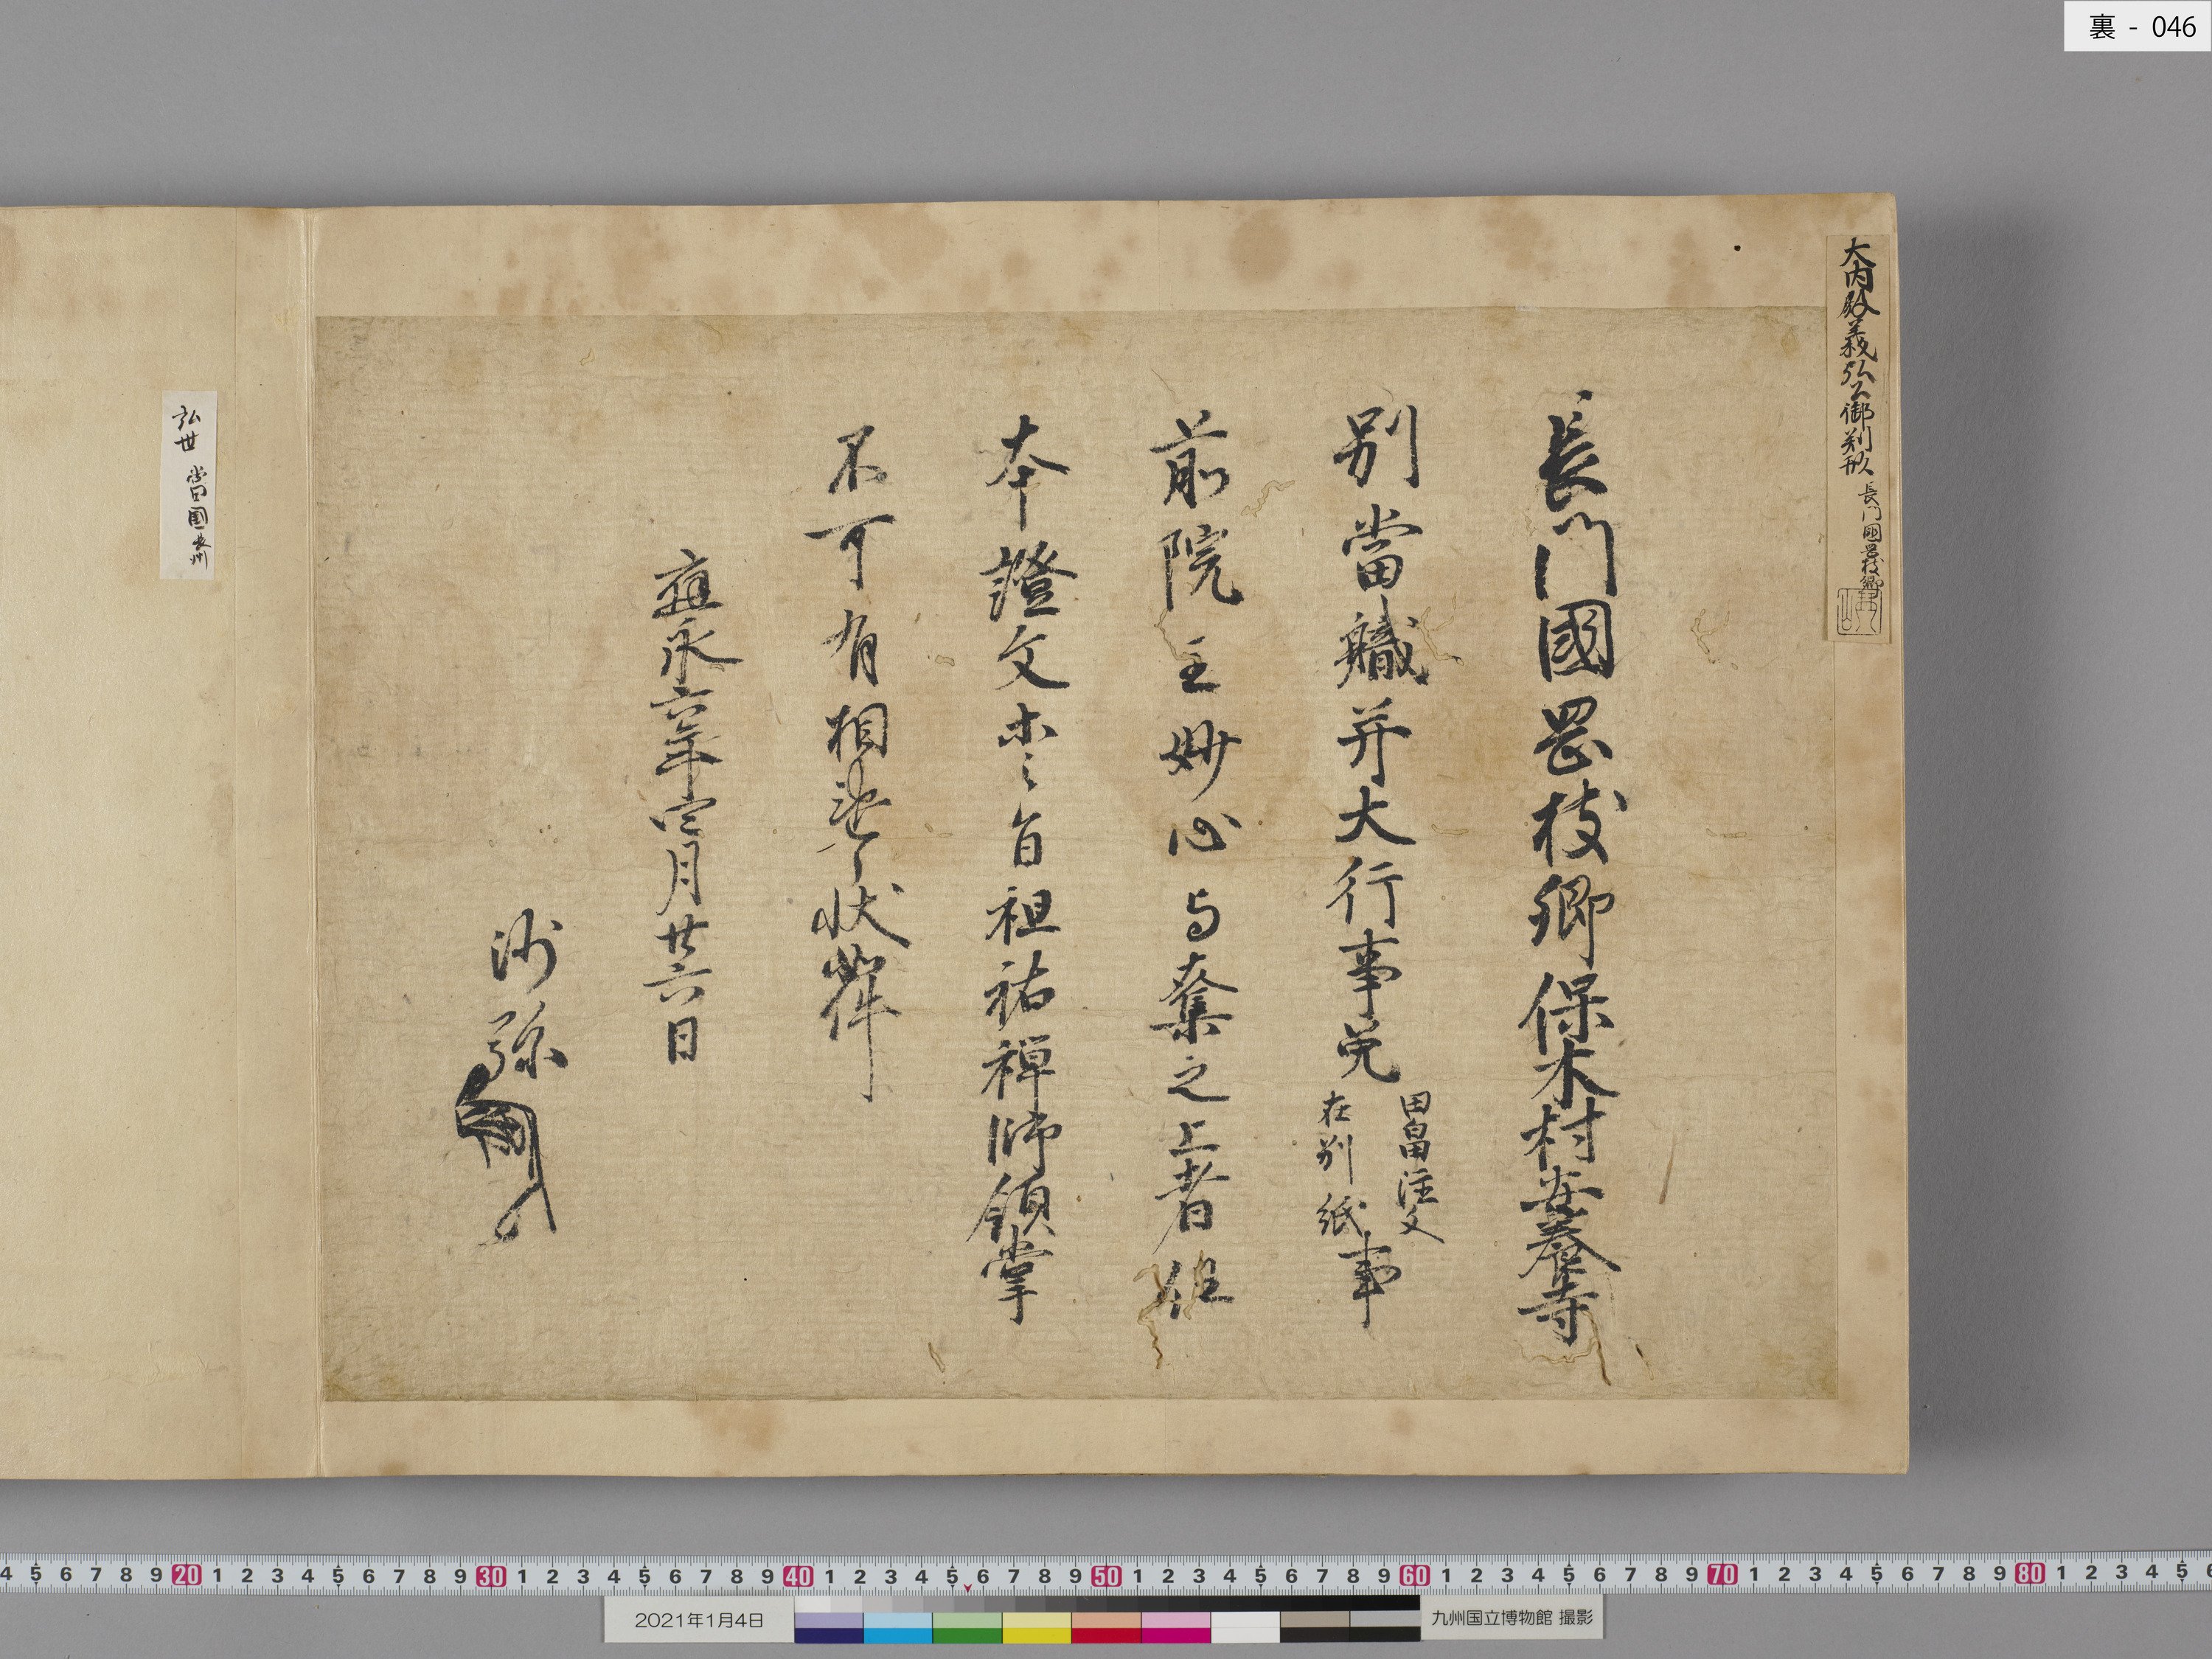 裏 - 046
大内殿義弘公御判形 長門國罡枝郷
長門國罡枝郷保木村安養寺
別當職并大行事免 田畠注文 在別紙 事
前院主妙心与奪之上者任
本證文等之旨祖祐禅師領掌
不可有相違之状如件
應永六年四月廿六日
沙弥
弘世 當国長州
2021年1月4日
九州国立博物館 撮影